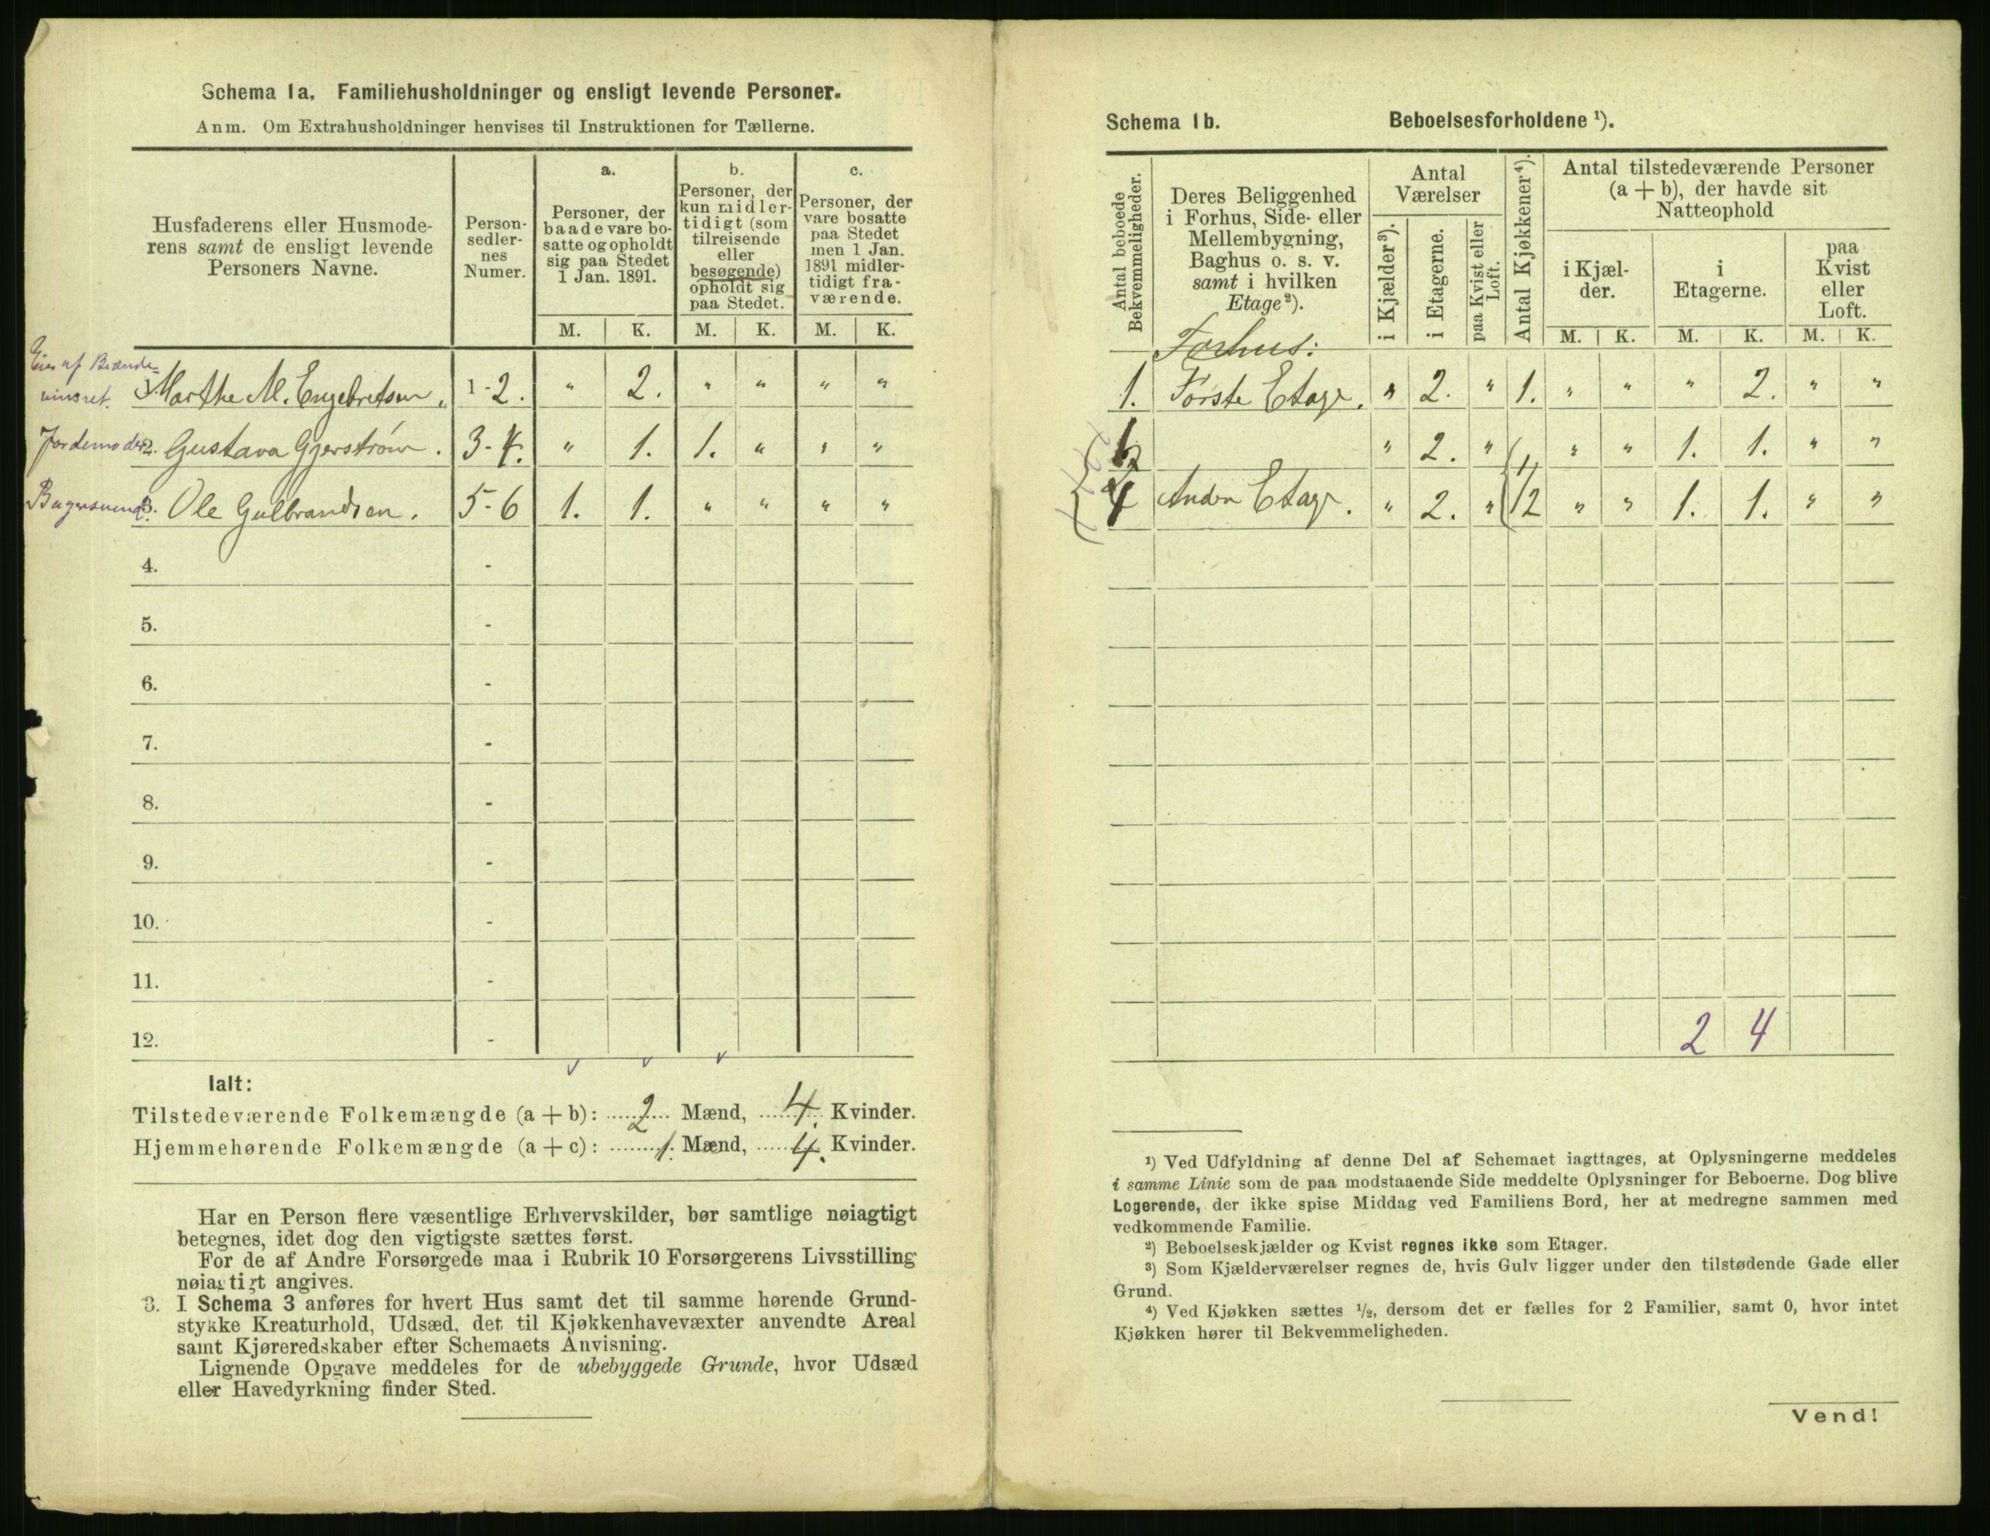 Schema 1a. Familiehusholdninger og ensligt levende Personer.
Anm. Om Extrahusholdninger henvises til Instruktionen for Tællerne.
Husfaderens eller Husmode-
rens samt de ensligt levende
Personers Navne.
Person-
sedler-
nes
Numer.
a.
Personer, der
baade vare bo-
satte og opholdt
sig paa Stedet
1 Jan. 1891.
b.
Personer, der
kun midler-
tidigt (som
tilreisende
eller
besøgende)
opholdt sig
paa Stedet.
c.
Personer, der
vare bosatte
paa Stedet
men 1 Jan.
1891 midler-
tidigt fra-
værende.
M. K. M. K. M. K.
Eier af Brænde-
vinsret. 1. Marthe M. Engebretsen. 1-2. " 2. " " " "
Jordemoder 2. Gustava Gjerstrøm. 3-4. " 1. 1. " " "
Bagersvend 3. Ole Gulbrandsen. 5-6 1. 1. " " " "
4. -
5. -
6. -
7. -
8. -
9. -
10. -
11. -
12. -
Ialt:
Tilstedeværende Folkemængde (a + b): 2 Mænd, 4. Kvinder.
Hjemmehørende Folkemængde (a + c): 1. Mænd, 4. Kvinder.
Har en Person flere væsentlige Erhvervskilder, bør samtlige nøiagtigt
betegnes, idet dog den vigtigste sættes først.
For de af Andre Forsørgede maa i Rubrik 10 Forsørgerens Livsstilling
nøiagtigt angives.
3. I Schema 3 anføres for hvert Hus samt det til samme hørende Grund-
stykke Kreaturhold, Udsæd, det til Kjøkkenhavevæxter anvendte Areal
samt Kjøreredskaber efter Schemaets Anvisning.
Lignende Opgave meddeles for de ubebyggede Grunde, hvor Udsæd
eller Havedyrkning finder Sted.
Schema 1b. Beboelsesforholdene ¹).
Antal beboede
Bekvemmeligheder.
Deres Beliggenhed
i Forhus, Side- eller
Mellembygning,
Baghus o. s. v.
samt i hvilken
Etage²).
Antal
Værelser
i Kjælder³).
i Etagerne.
paa Kvist eller
Loft.
Antal Kjøkkener⁴).
Antal tilstedeværende Personer
(a + b), der havde sit
Natteophold
i Kjæl-
der.
i
Etagerne.
paa
Kvist
eller
Loft.
M. K. M. K. M. K.
Forhus:
1. Første Etage. " 2. " 1. " " " 2. " "
" 2. " " " 1. 1. " "
Anden Etage. " 2. " 1/2 " " 1. 1. " "
2 4
¹) Ved Udfyldning af denne Del af Schemaet iagttages, at Oplysningerne meddeles
i samme Linie som de paa modstaaende Side meddelte Oplysninger for Beboerne. Dog blive
Logerende, der ikke spise Middag ved Familiens Bord, her at medregne sammen med
vedkommende Familie.
²) Beboelseskjælder og Kvist regnes ikke som Etager.
³) Som Kjælderværelser regnes de, hvis Gulv ligger under den tilstødende Gade eller
Grund.
⁴) Ved Kjøkken sættes ½, dersom det er fælles for 2 Familier, samt 0, hvor intet
Kjøkken hører til Bekvemmeligheden.
Vend!